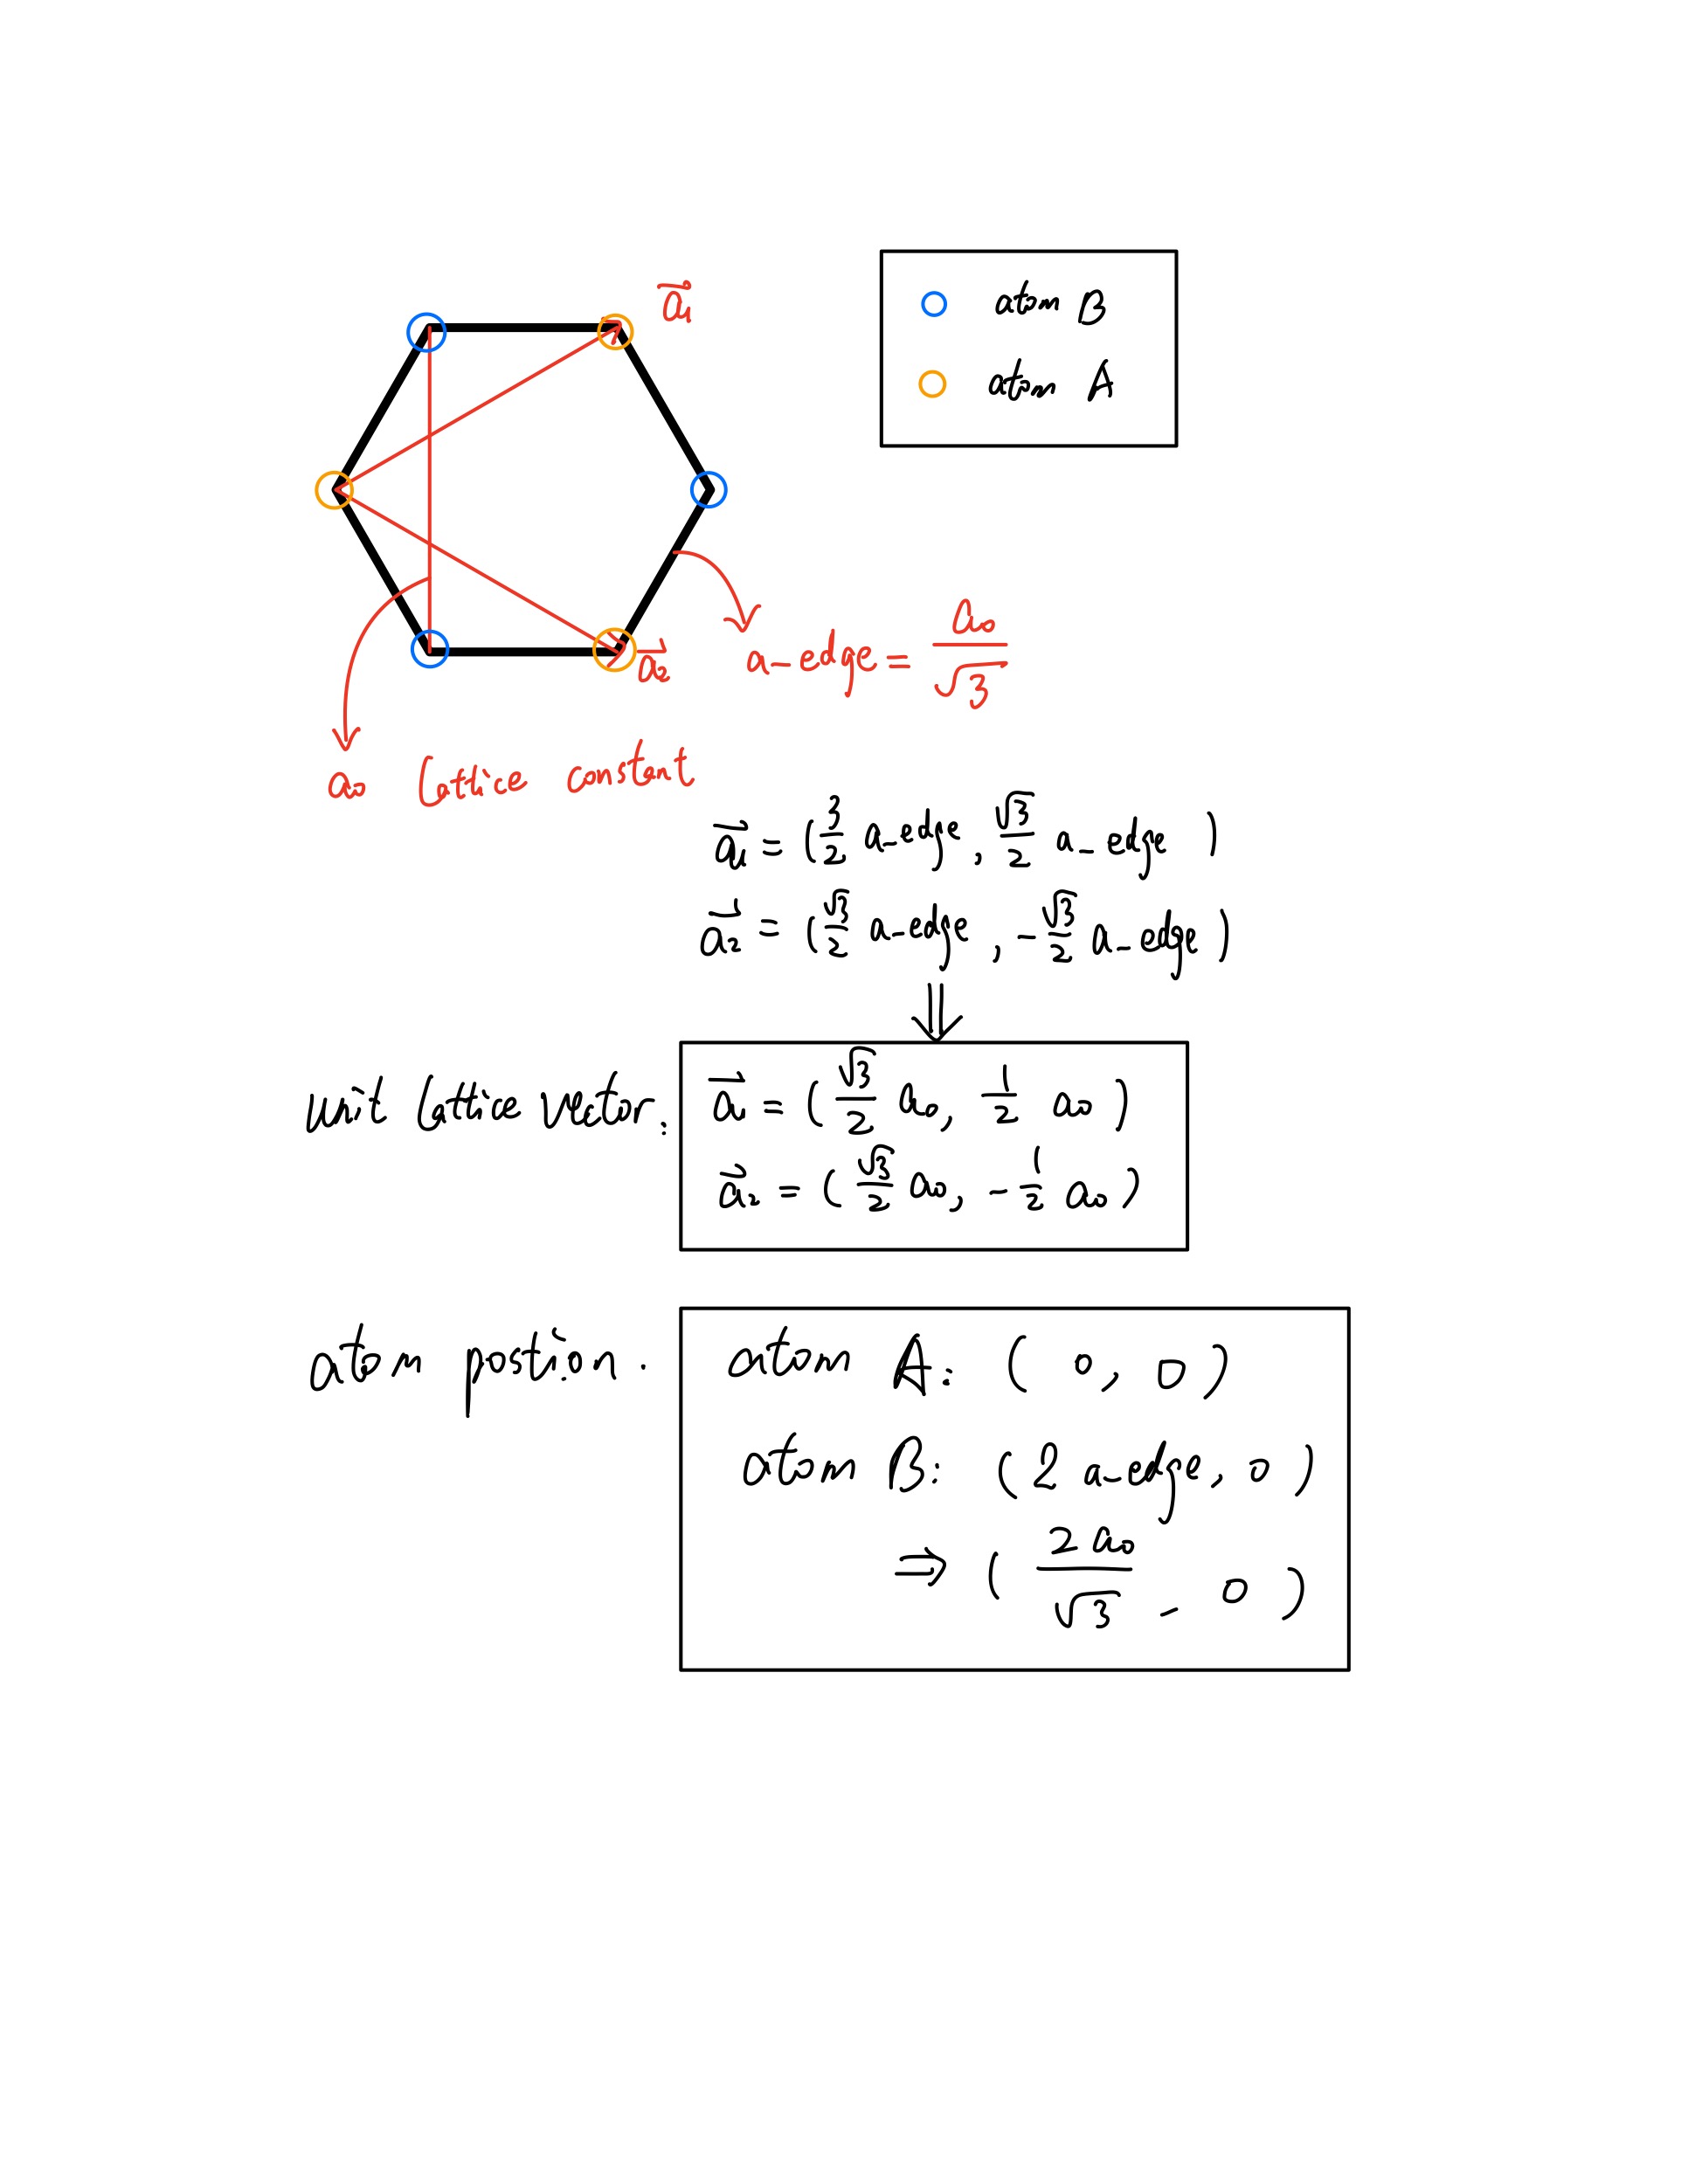 a⃗₁
atom B
atom A
a⃗₂
a-edge = a₀/√3
a₀ lattice constant
a⃗₁ = (3/2 a-edge, √3/2 a-edge)
a⃗₂ = (√3/2 a-edge, -√3/2 a-edge)
⇓
unit lattice vector: a⃗₁ = (√3/2 a₀, 1/2 a₀)
a⃗₂ = (√3/2 a₀, -1/2 a₀)
atom postion. atom A: (0, 0)
atom B: (2 a-edge, 0)
⇒ (2a₀/√3 - 0)